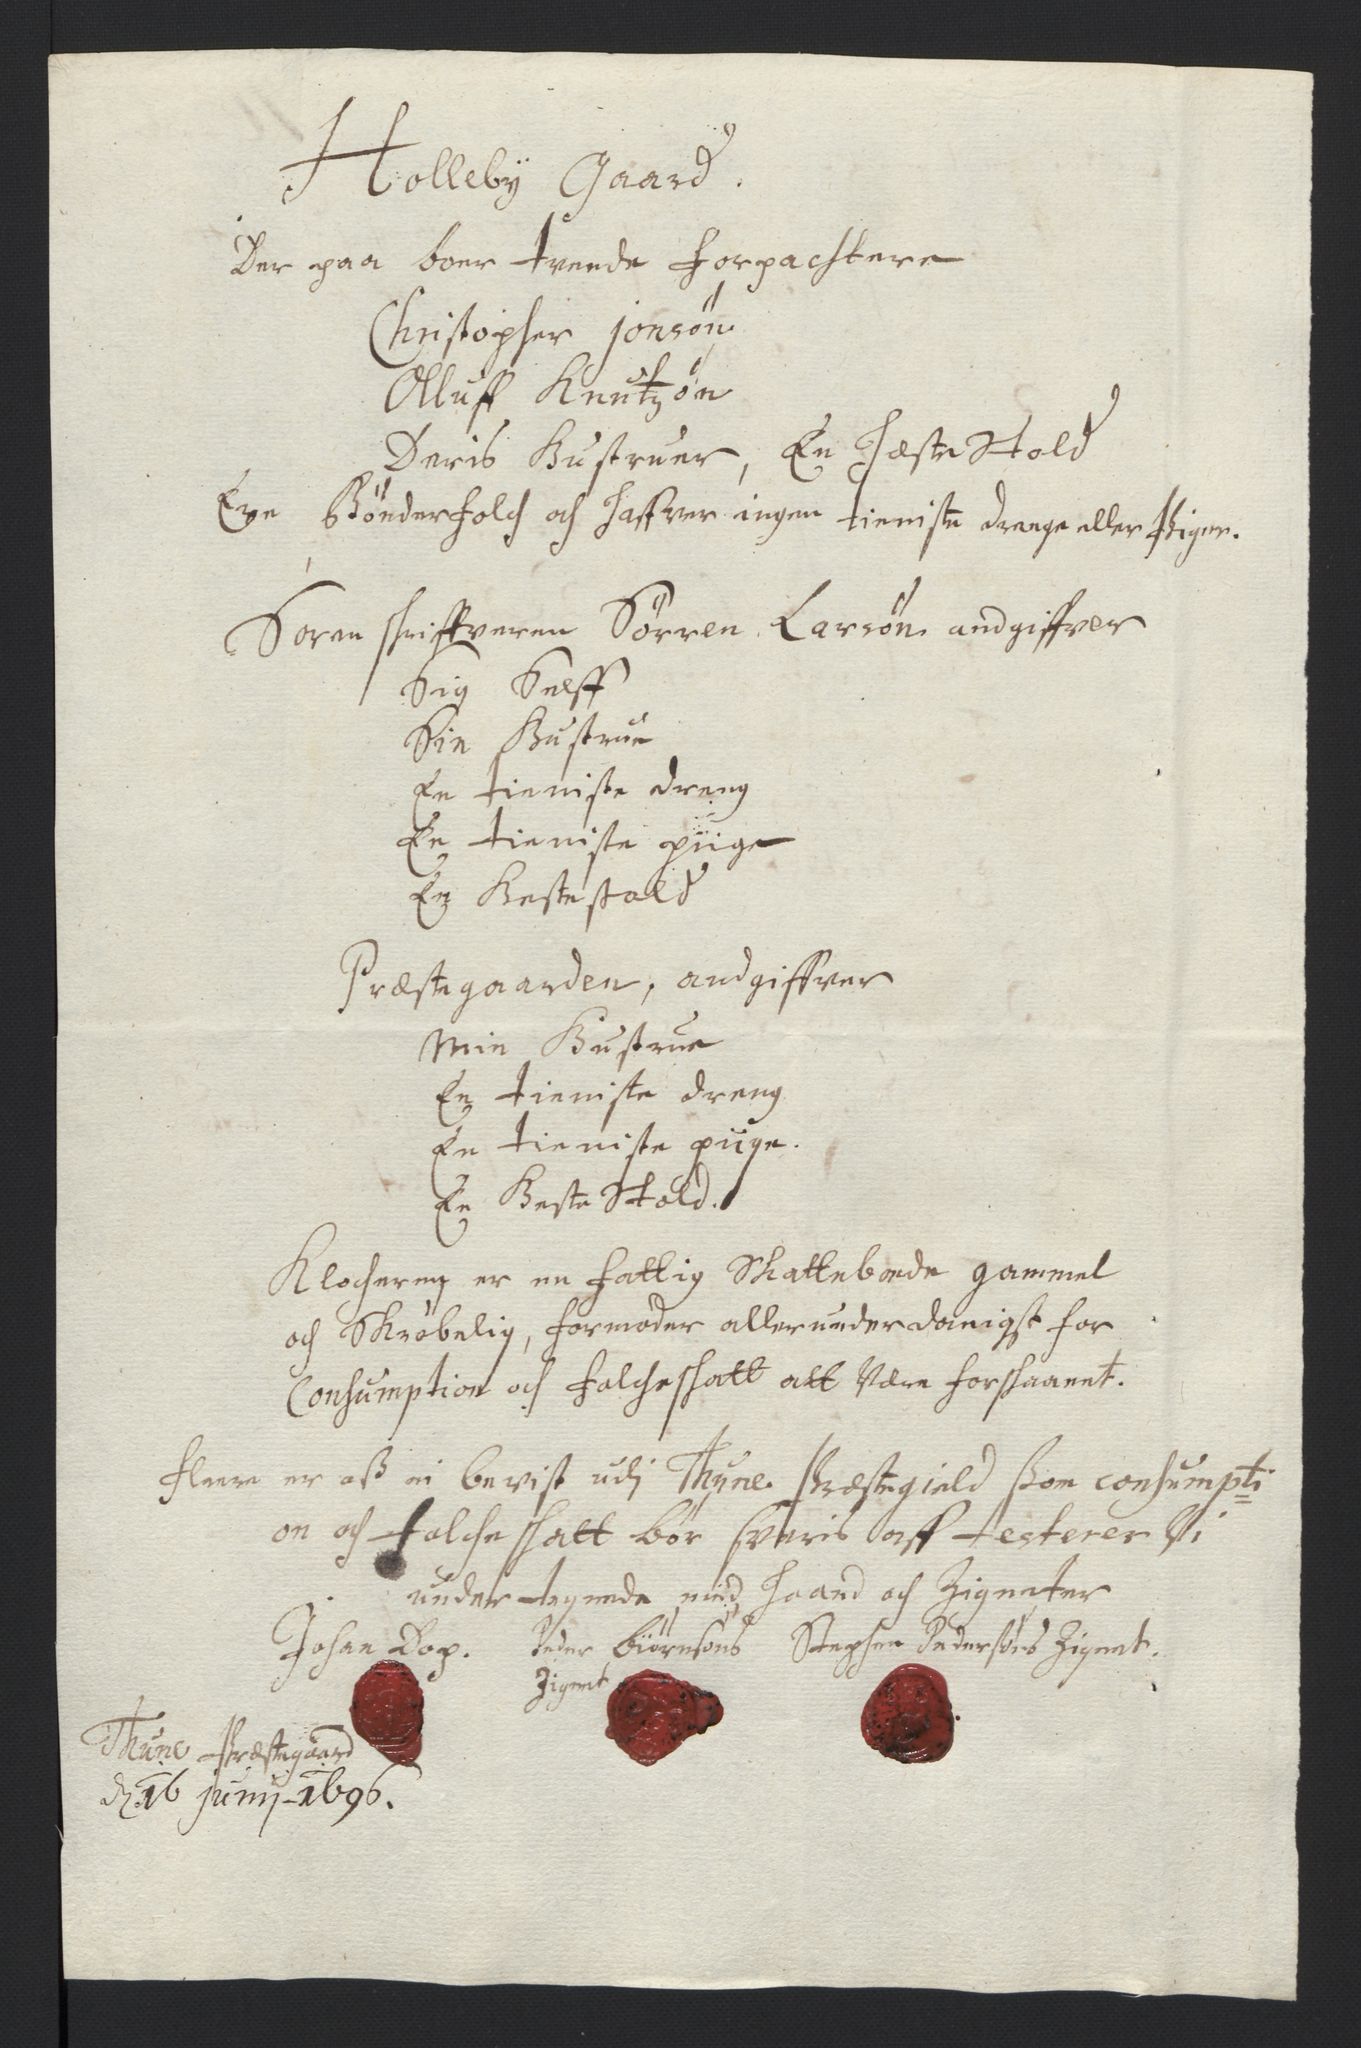 Holleby Gaard.
Der paa boer tvende forpachtere
Christopher jonsøn
Olluff Knutzøn
Deris Hustruer, En hæste Stold
Ere Bønderfolch och haffver ingen tieniste drenge eller Piger.
Soren schriffveren Sørren Larsøn andgiffver
Sig Self
Sin Hustrue
En tieniste dreng
En tieniste piige
En Hestestald
Præstegaarden, andgiffver
Min Hustrue
En tieniste dreng
En tieniste piige.
En Heste Stold.
Klocheren er en fattig Skattebode gammel
och Skrøbelig, formoder allerunderdanigst for
Consumption och folcheschatt att være forschaanet.
fleere er oss ei bevist udj Thune Præstegield som consumpti=
on och folcheschatt bør svaris aff testerer Vi
undertegnede med haand och Zigneter
Johan Dop. Peder Biørnsøns Stephen Pedersøns Zignet.
Zignet
Thune Præstegaard
d. 16 junij 1696.